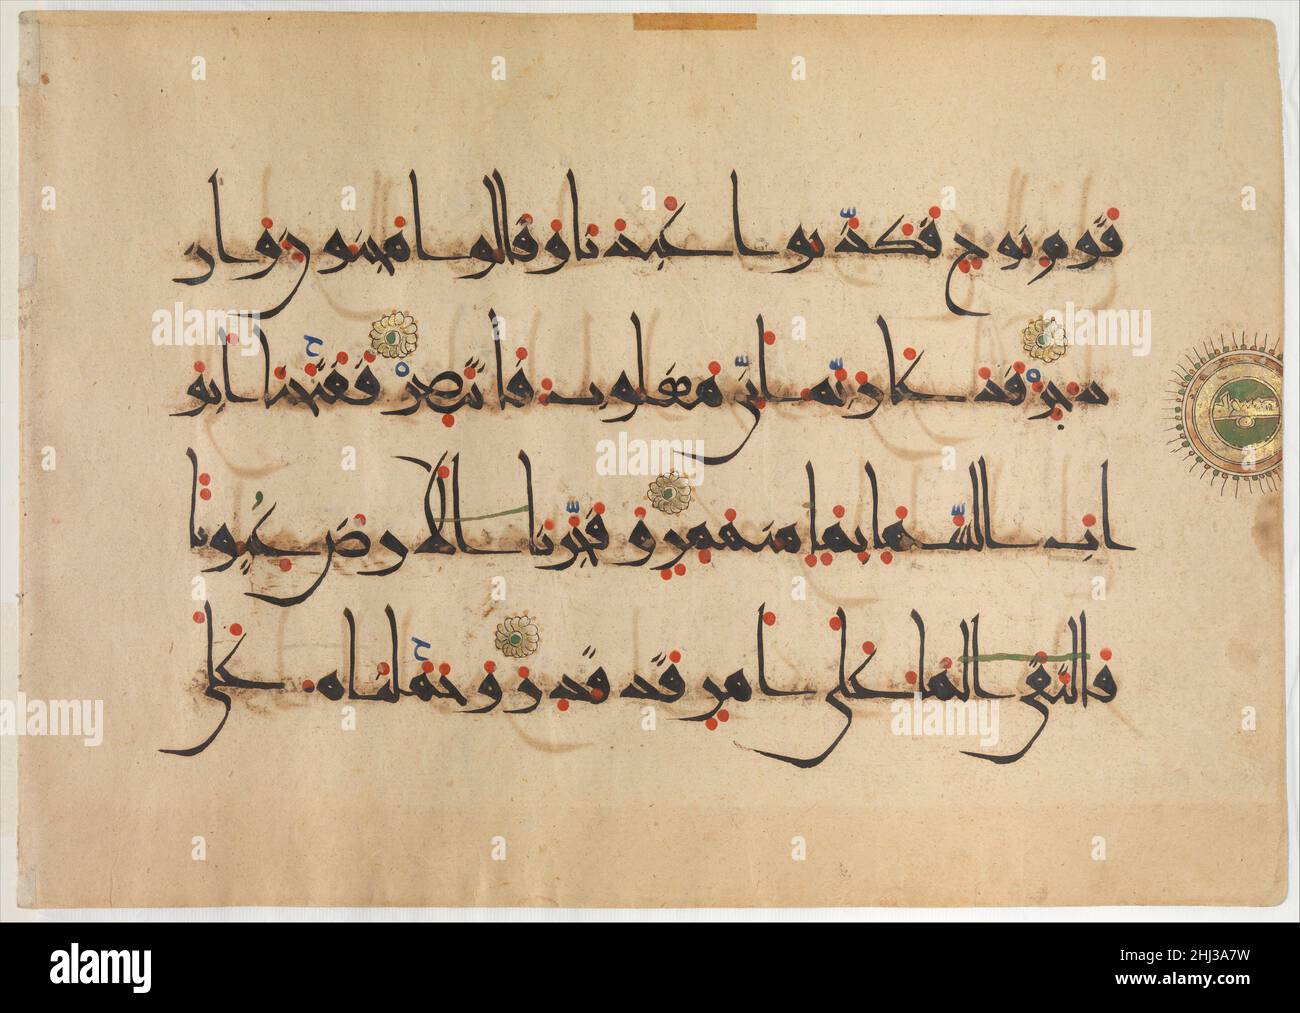 قوم نوح فكذبوا عبدنا وقالوا مجنون واز
دجر فدعا ربه اني مغلوب فانتصر ففتحنا ابو
اب السما بما منهمر وفجرنا الارض عيونا
فالتقى الما على امر قد قدر وحملناه على
alamy
Image ID: 2HJ3A7W
www.alamy.com